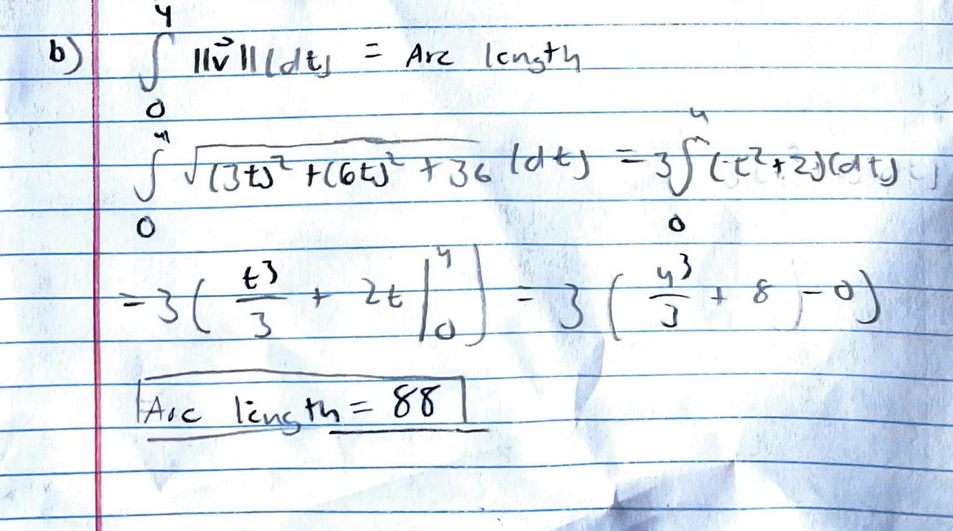 b) ∫₀⁴ ||v⃗|| (dt) = Arc length
∫₀⁴ √((3t)² + (6t)² + 36) (dt) = 3∫₀⁴ (t²+2)(dt)
= 3( t³/3 + 2t |₀⁴ ) = 3( 4³/3 + 8 - 0)
Arc length = 88